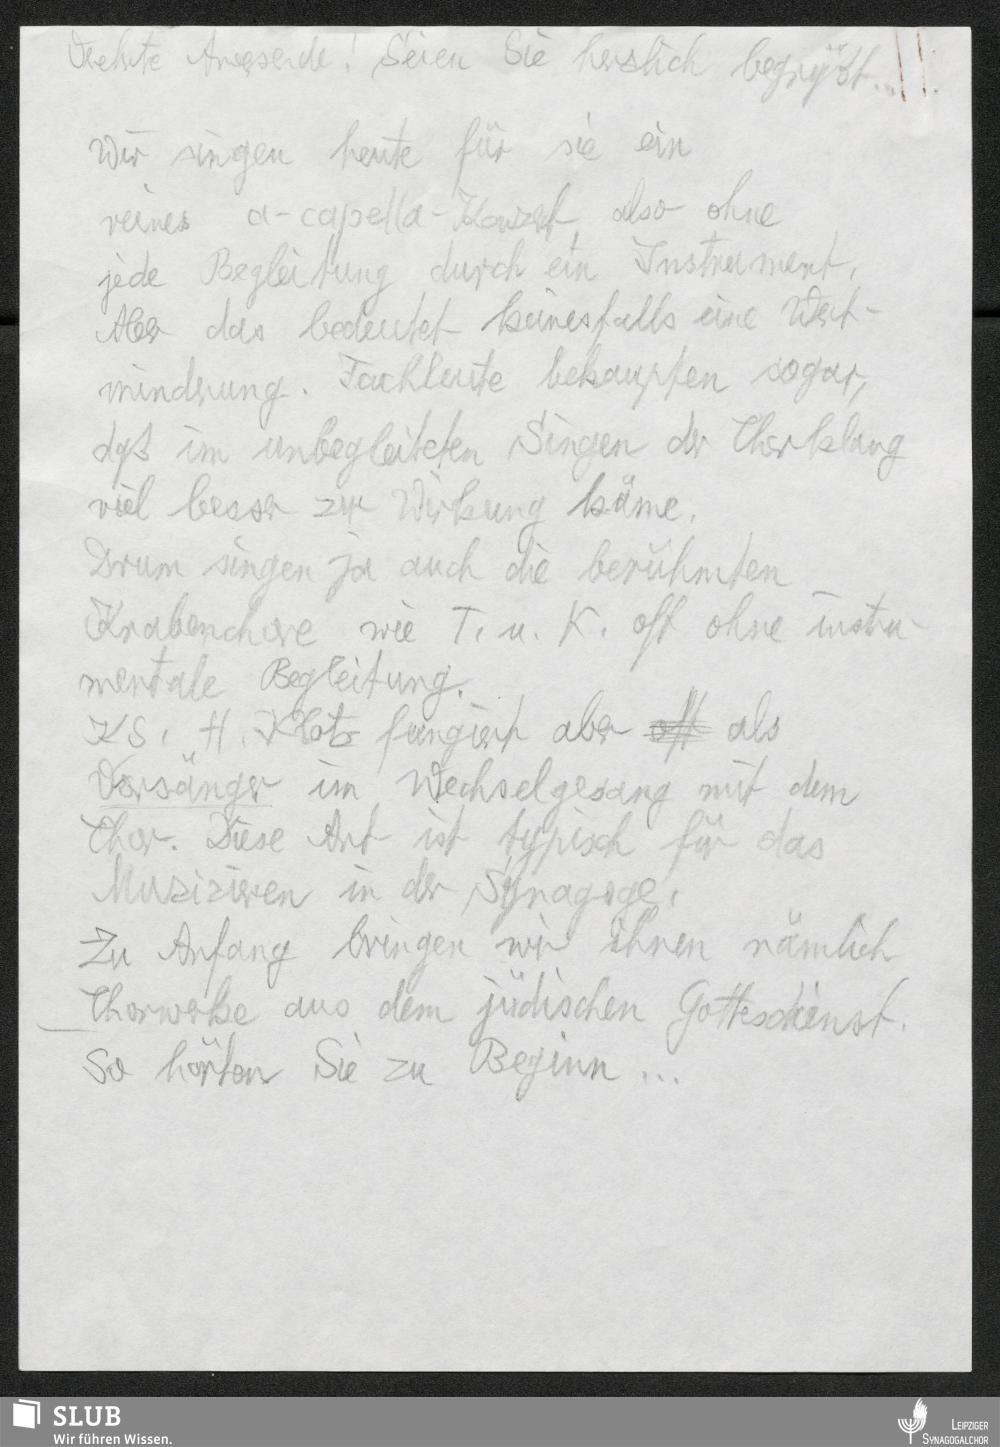 Verehrte Anwesende! Seien Sie herzlich begrüßt...
Wir singen heute für sie ein
reines a-capella-Konzert, also ohne
jede Begleitung durch ein Instrument.
Aber das bedeutet keinesfalls eine Wert-
minderung. Fachleute behaupten sogar,
daß im unbegleiteten Singen der Chorklang
viel besser zur Wirkung käme.
Drum singen ja auch die berühmten
Knabenchöre wie T. u. K. oft ohne instru-
mentale Begleitung.
KS. H. Klotz fungiert aber oft als
Vorsänger im Wechselgesang mit dem
Chor. Diese Art ist typisch für das
Musizieren in der Synagoge.
Zu Anfang bringen wir Ihnen nämlich
Chorwerke aus dem jüdischen Gottesdienst.
So hörten Sie zu Beginn ...
SLUB
Wir führen Wissen.
LEIPZIGER
SYNAGOGALCHOR